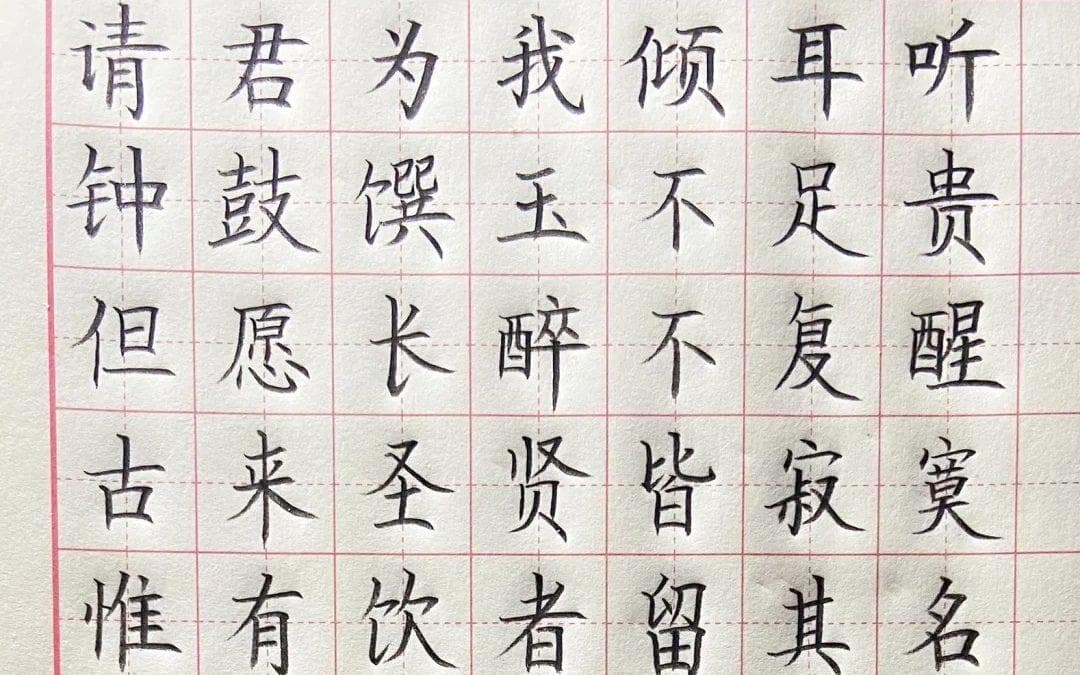 请君为我倾耳听
钟鼓馔玉不足贵
但愿长醉不复醒
古来圣贤皆寂寞
惟有饮者留其名